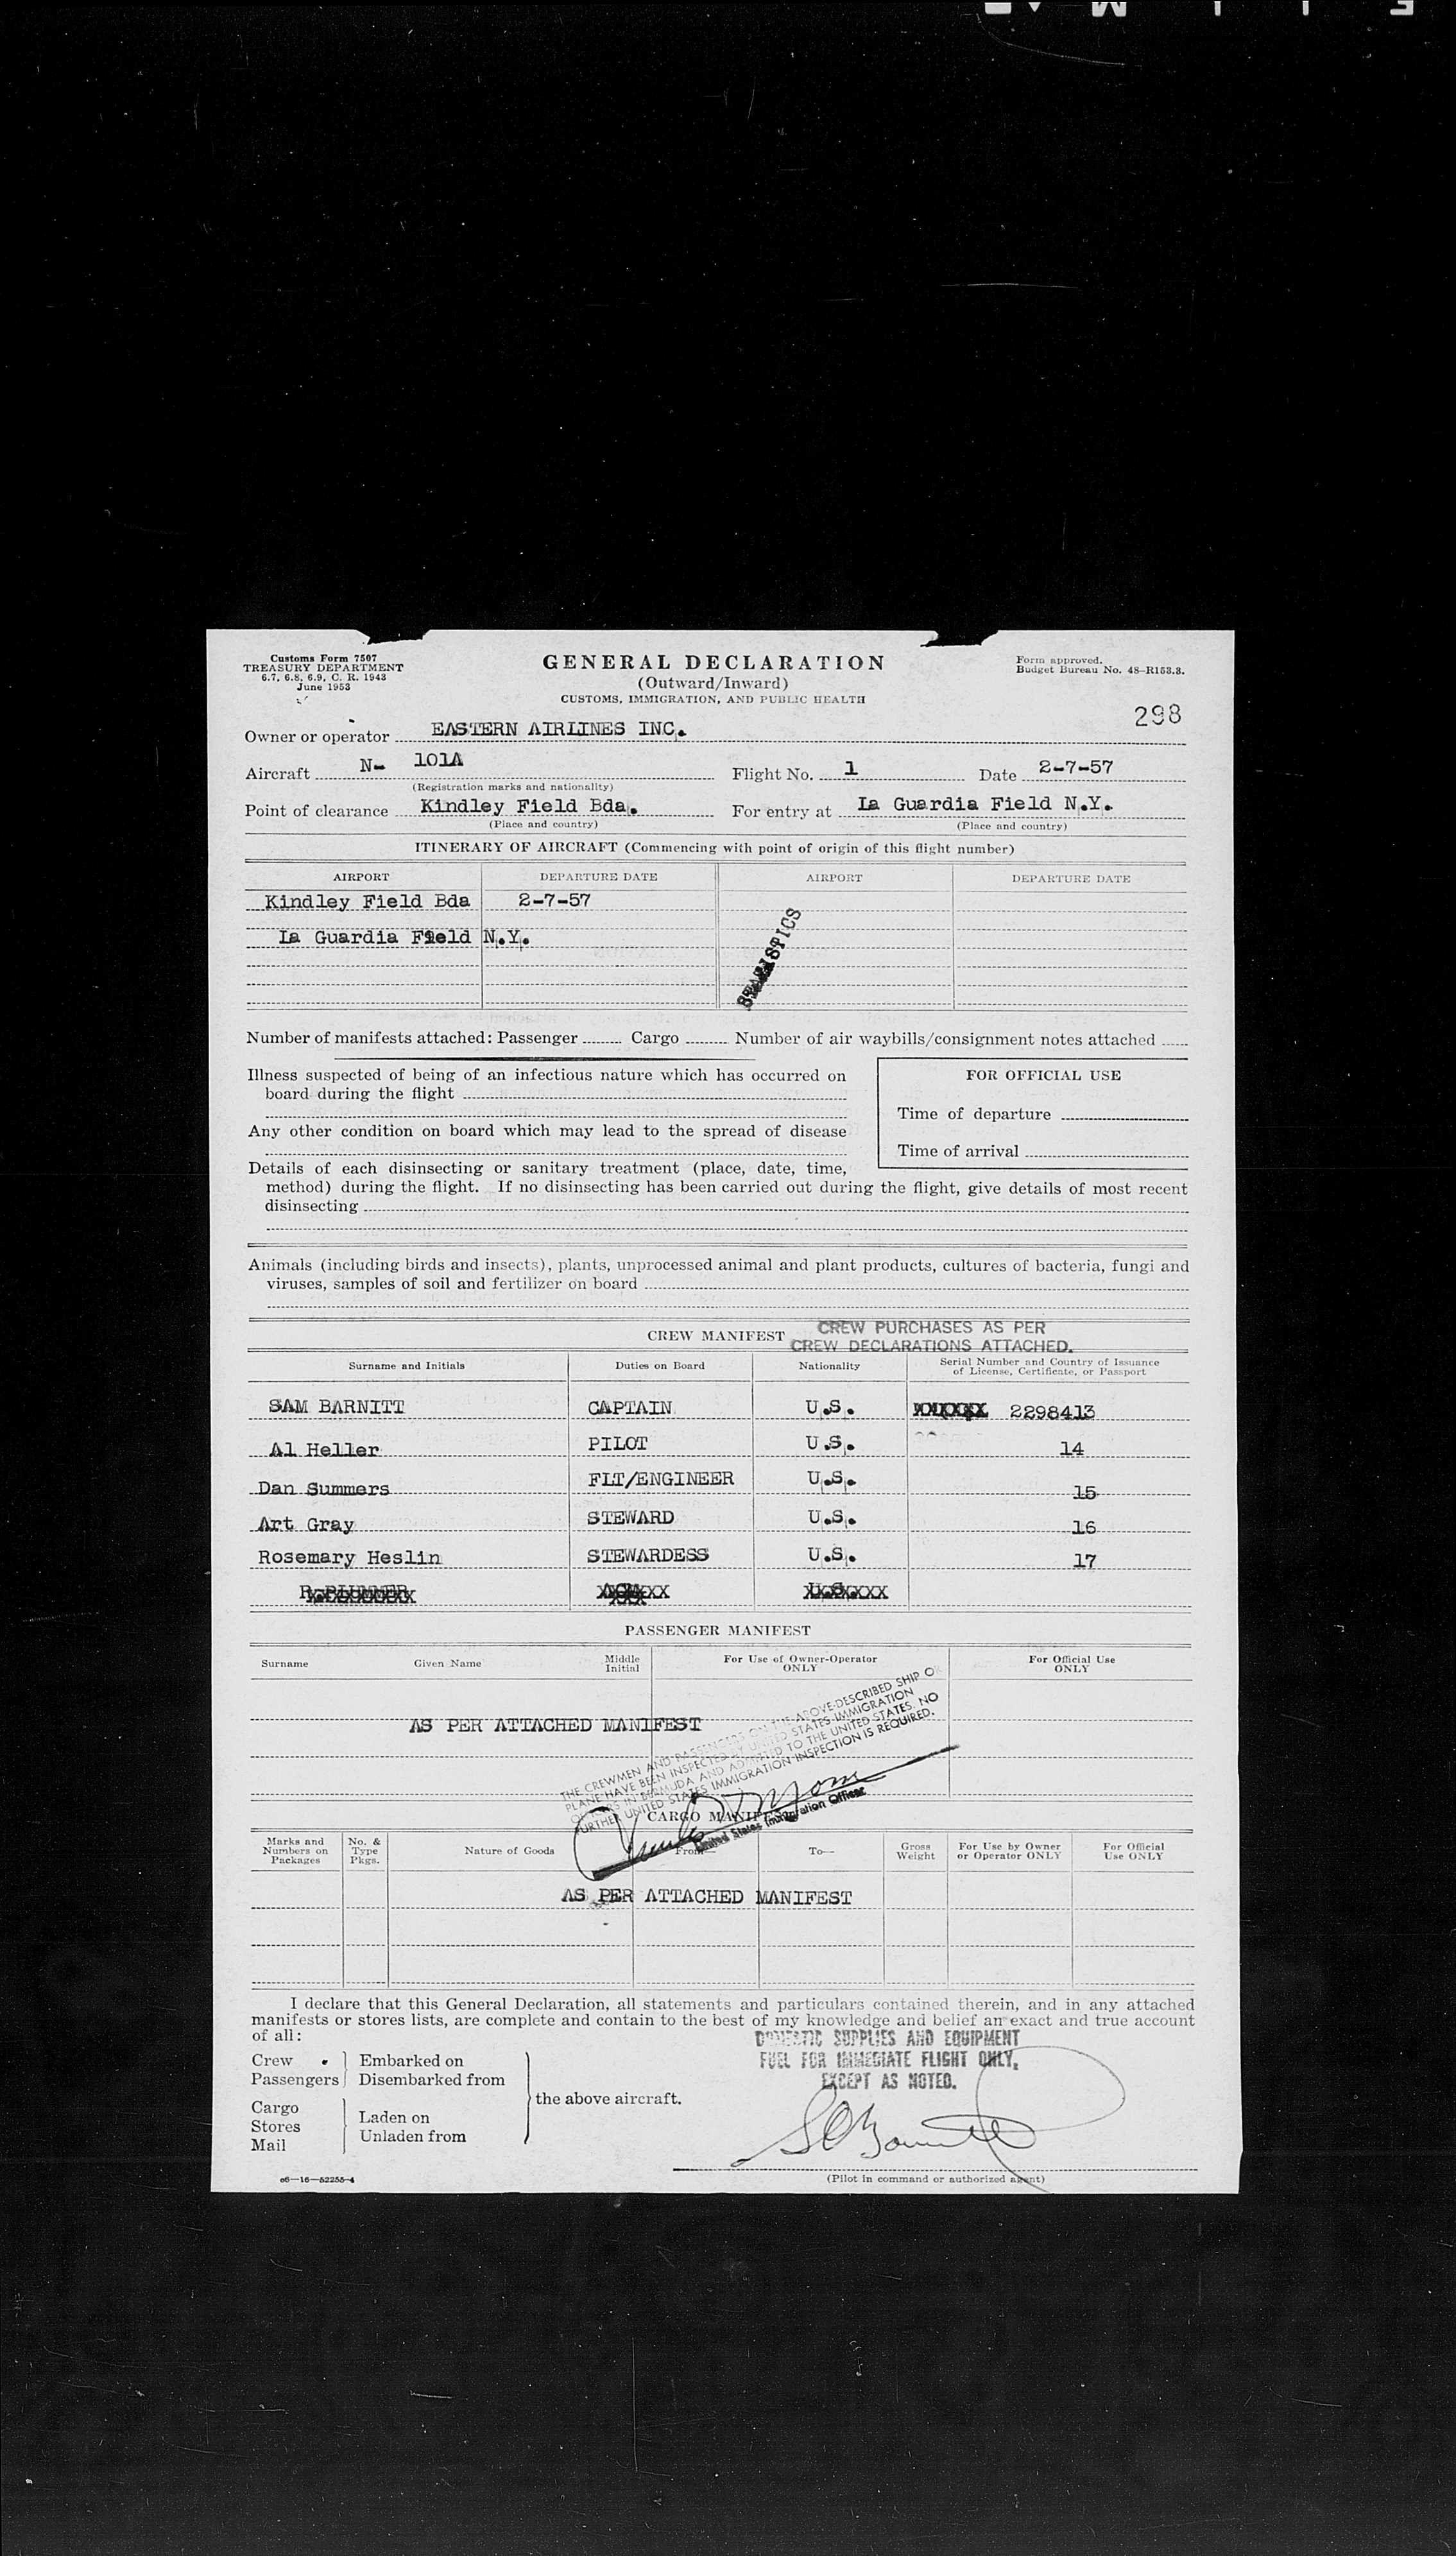 Customs Form 7507
TREASURY DEPARTMENT
6.7, 6.8, 6.9, C. R. 1943
June 1953
GENERAL DECLARATION
(Outward/Inward)
CUSTOMS, IMMIGRATION, AND PUBLIC HEALTH
Form approved.
Budget Bureau No. 48-R153.3.
298
Owner or operator EASTERN AIRLINES INC.
Aircraft N- 101A Flight No. 1 Date 2-7-57
(Registration marks and nationality)
Point of clearance Kindley Field Bda. For entry at La Guardia Field N.Y.
(Place and country) (Place and country)
ITINERARY OF AIRCRAFT (Commencing with point of origin of this flight number)
AIRPORT DEPARTURE DATE AIRPORT DEPARTURE DATE
Kindley Field Bda 2-7-57
La Guardia Field N.Y.
Number of manifests attached: Passenger Cargo Number of air waybills/consignment notes attached
Illness suspected of being of an infectious nature which has occurred on
board during the flight
Any other condition on board which may lead to the spread of disease
FOR OFFICIAL USE
Time of departure
Time of arrival
Details of each disinsecting or sanitary treatment (place, date, time,
method) during the flight. If no disinsecting has been carried out during the flight, give details of most recent
disinsecting
Animals (including birds and insects), plants, unprocessed animal and plant products, cultures of bacteria, fungi and
viruses, samples of soil and fertilizer on board
CREW MANIFEST
CREW PURCHASES AS PER
CREW DECLARATIONS ATTACHED.
Surname and Initials Duties on Board Nationality Serial Number and Country of Issuance
of License, Certificate, or Passport
SAM BARNITT CAPTAIN U.S. 2298413
Al Heller PILOT U.S. 14
Dan Summers FLT/ENGINEER U.S. 15
Art Gray STEWARD U.S. 16
Rosemary Heslin STEWARDESS U.S. 17
PASSENGER MANIFEST
Surname Given Name Middle
Initial For Use of Owner-Operator
ONLY For Official Use
ONLY
AS PER ATTACHED MANIFEST
THE CREWMEN AND PASSENGERS ON THE ABOVE-DESCRIBED SHIP O
PLANE HAVE BEEN INSPECTED BY UNITED STATES IMMIGRATION
IN BERMUDA AND ADMITTED TO THE UNITED STATES. NO
FURTHER UNITED STATES IMMIGRATION INSPECTION IS REQUIRED.
United States Immigration Officer
CARGO MANIFEST
Marks and
Numbers on
Packages No. &
Type
Pkgs. Nature of Goods From— To— Gross
Weight For Use by Owner
or Operator ONLY For Official
Use ONLY
AS PER ATTACHED MANIFEST
I declare that this General Declaration, all statements and particulars contained therein, and in any attached
manifests or stores lists, are complete and contain to the best of my knowledge and belief an exact and true account
of all:
DOMESTIC SUPPLIES AND EQUIPMENT
FUEL FOR IMMEDIATE FLIGHT ONLY,
EXCEPT AS NOTED.
Crew
Passengers
Embarked on
Disembarked from
Cargo
Stores
Mail
Laden on
Unladen from
the above aircraft.
(Pilot in command or authorized agent)
c6—16—52255-4